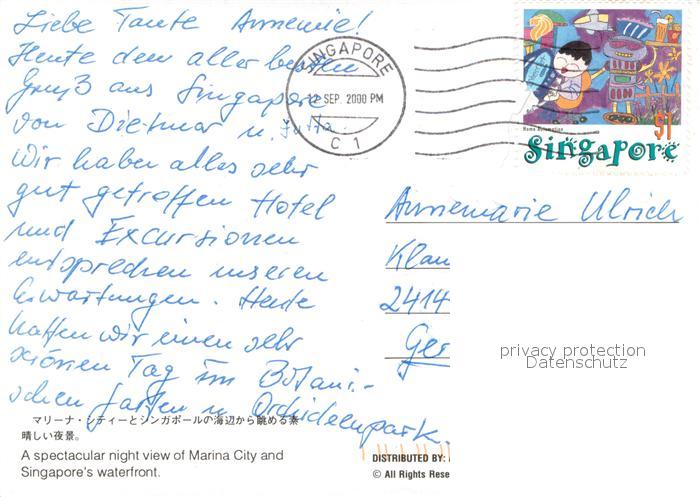 Liebe Tante Annemie!
Heute den aller besten
Gruß aus Singapore
von Dietmar u. Jutta
Wir haben alles sehr
gut getroffen Hotel
und Excursionen
entsprechen unseren
Erwartungen. Heute
hatten wir einen sehr
schönen Tag im Botani-
schen Garten u. Orchideenpark.
マリーナ・シティーとシンガポールの海辺から眺める素
晴しい夜景。
A spectacular night view of Marina City and
Singapore's waterfront.
SINGAPORE
12 SEP. 2000 PM
C 1
Home Automation
$1
Singapore
Annemarie Ulrich
Klau
2414
Ger
privacy protection
Datenschutz
DISTRIBUTED BY:
© All Rights Rese